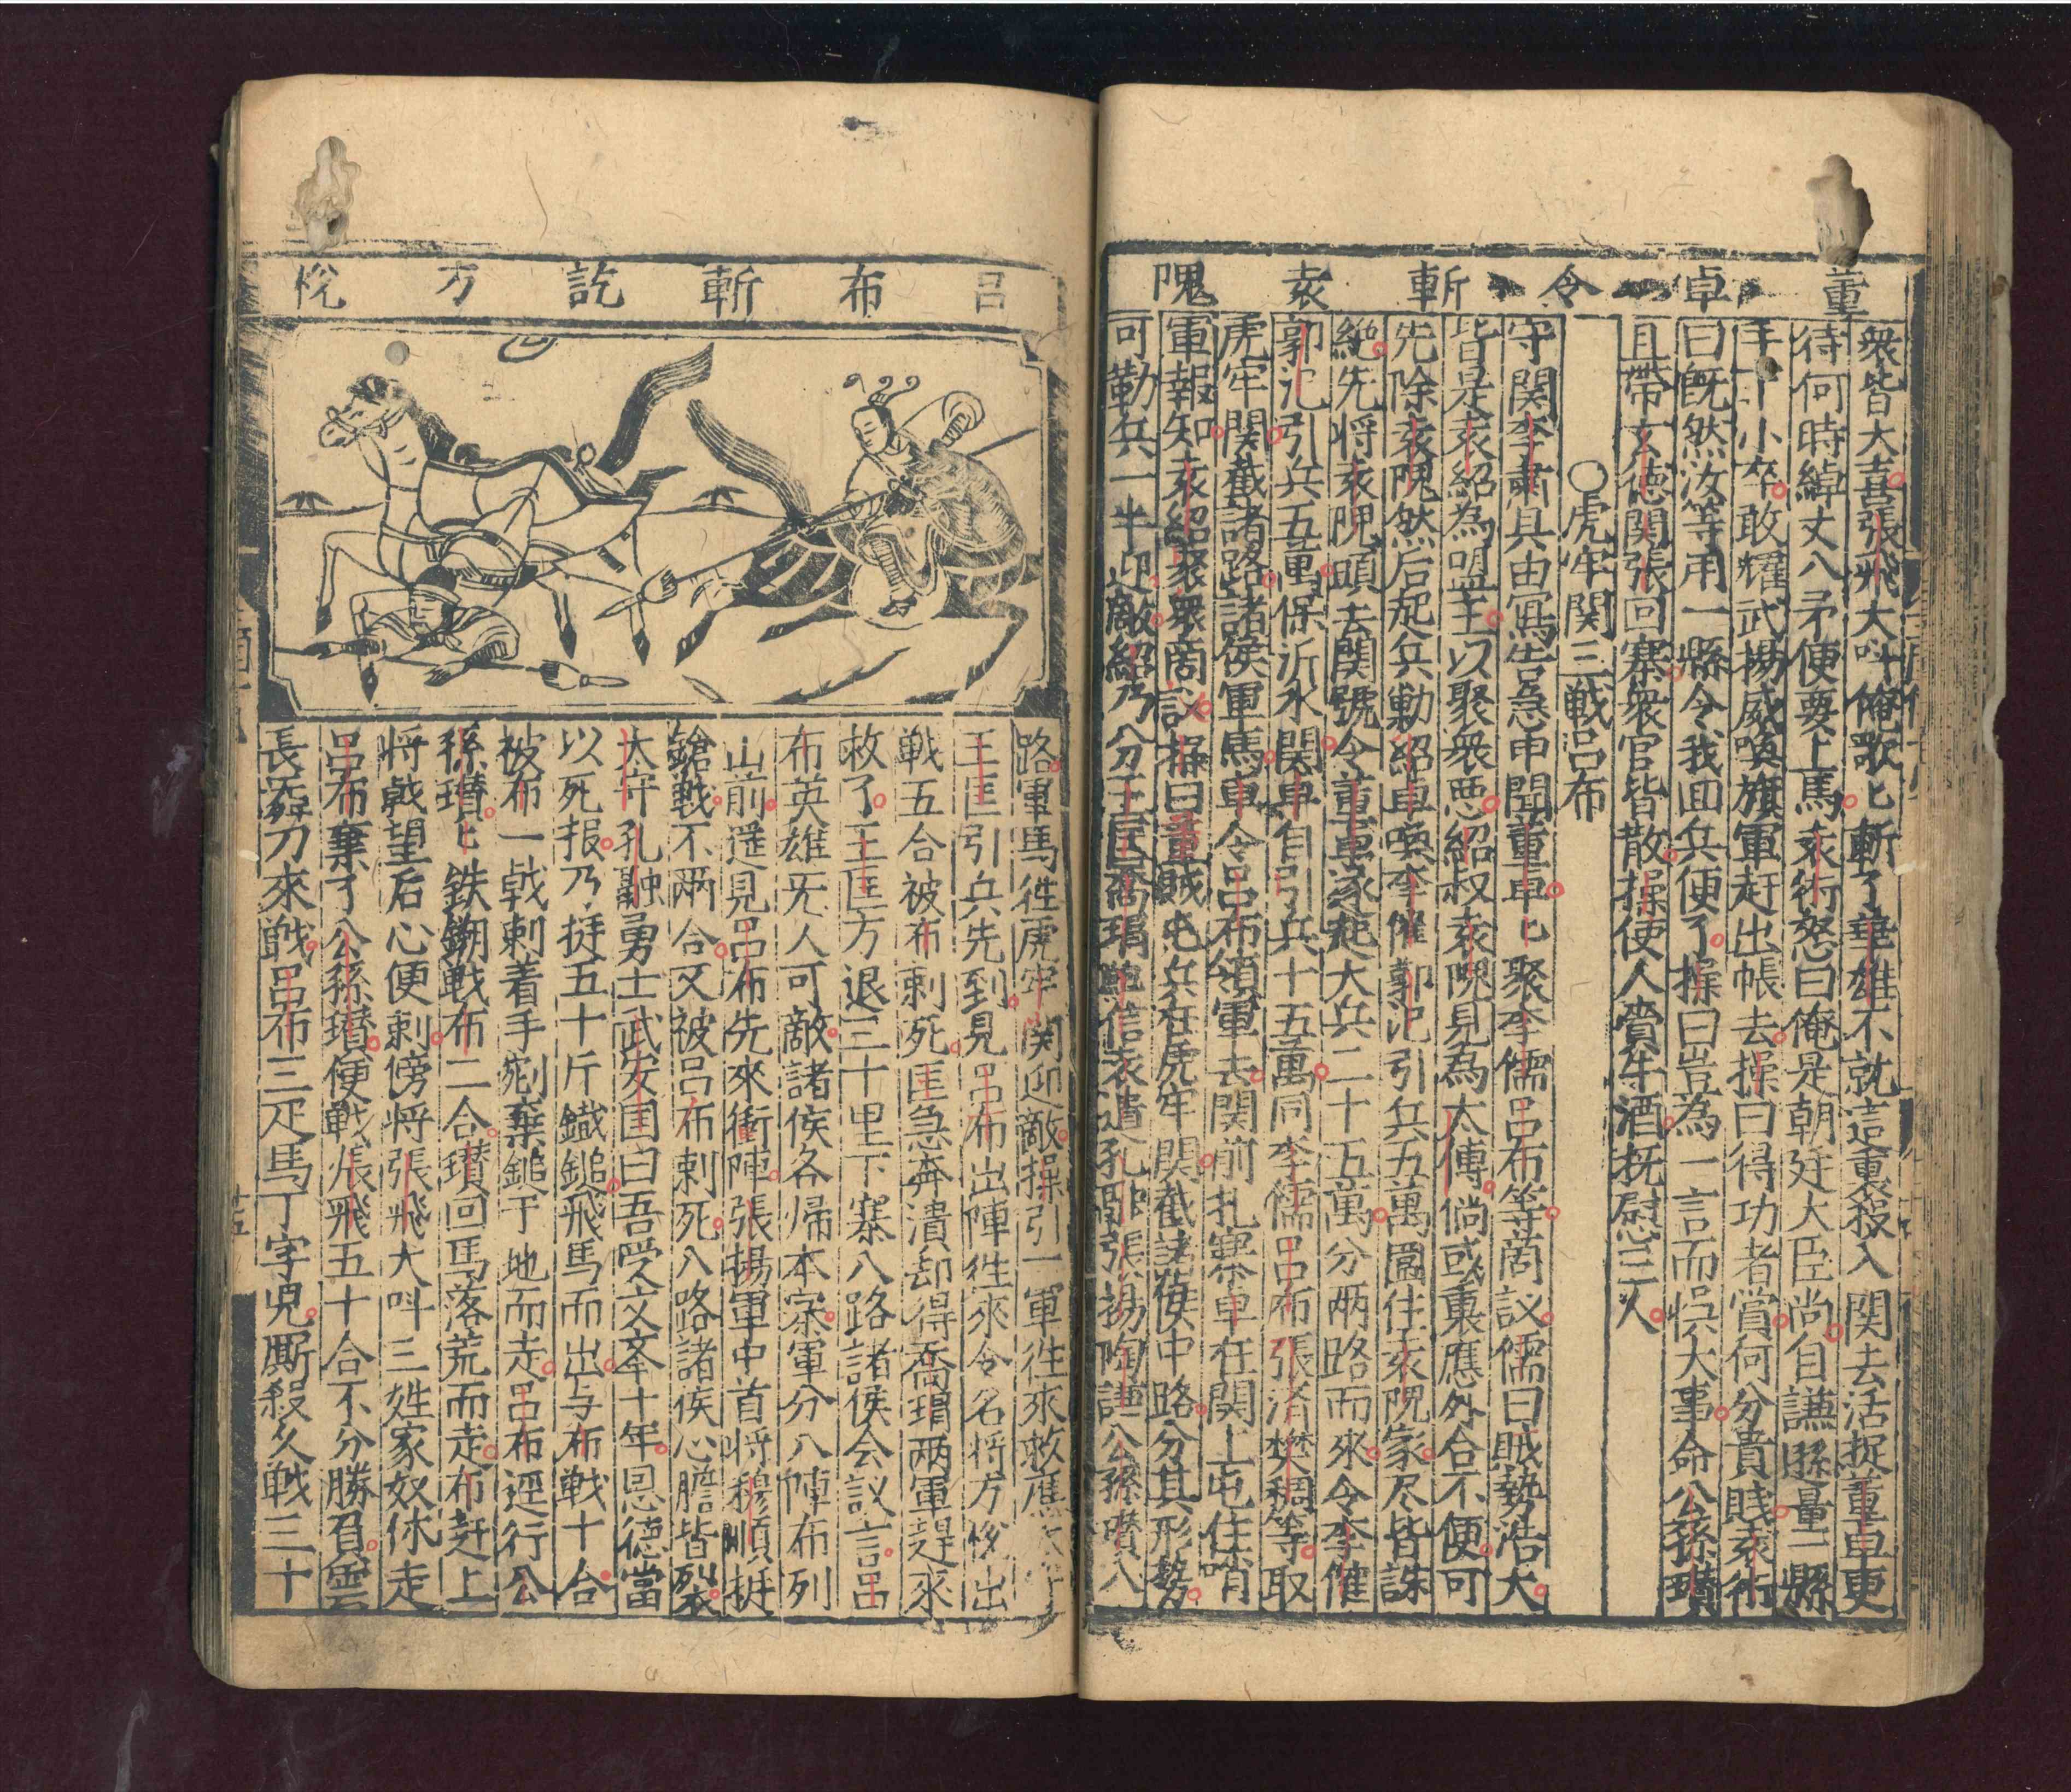 董卓令斬袁隗
衆皆大喜張飛大呌俺歌匕斬了華雄不就這裏殺入関去活捉董卓更
待何時綽丈八矛便要上馬袁術怒曰俺是朝廷大臣尚自謙遜量一縣
手下小卒敢耀武揚威喚旗軍赶出帳去操曰得功者賞何分貴賤袁術
曰旣然汝等用一縣令我囬兵便了操曰豈為一言而悞大事命公孫瓚
且帶玄德関張回寨衆官皆散操使人賫牛酒抚慰三人
○虎牢関三戰呂布
守関李肅具由寫告急申聞董卓匕聚李儒呂布等啇议儒曰賊勢浩大
皆是袁紹為盟主以聚衆悪紹叔袁隗見為太傅倘或裏應外合不便可
先除袁隗然后起兵動紹卓喚李傕郭汜引兵五萬圍住袁隗家尽皆誅
絶先将袁隗頭去関號令董卓遂起大兵二十五萬分两路而來令李傕
郭汜引兵五萬保沂水関卓自引兵十五萬同李儒呂布張済樊稠等取
虎牢関截諸路諸侯軍馬卓令呂布領軍去関前扎寨卓在関上屯住哨
軍報知袁紹聚衆啇议操曰董賊屯兵在虎牢関截諸侯中路分其形势
可勒兵一半迎敵紹乃分王匡喬瑁鮑信袁遺孔融張揚陶謙公孫瓚八
呂布斬訖方悅
路軍馬徃虎牢関迎敵操引一軍徃來救應
王匡引兵先到見呂布出陣徃來令名将方悅出
戰五合被布刺死匡急奔潰却得喬瑁两軍趕來
救了王匡方退三十里下寨八路諸侯会议言呂
布英雄旡人可敵諸侯各帰本寨軍分八陣布列
山前遥見呂布先來衝陣張揚軍中首将穆順挺
鎗戰不两合又被呂布刺死八路諸侯心膽皆裂
太守孔融勇士武安国曰吾受文奉十年恩德當
以死报乃挺五十斤鐡鎚飛馬而出与布戰十合
被布一戟刺着手剜棄鎚于地而走呂布逕行公
孫瓚匕鉄鎙戰布二合瓚回馬落荒而走布赶上
将戟望后心便刺傍将張飛大呌三姓家奴休走
呂布棄了公孫瓚便戰張飛五十合不分勝負雲
長舞刀來戰呂布三疋馬丁字児厮殺久戰三十